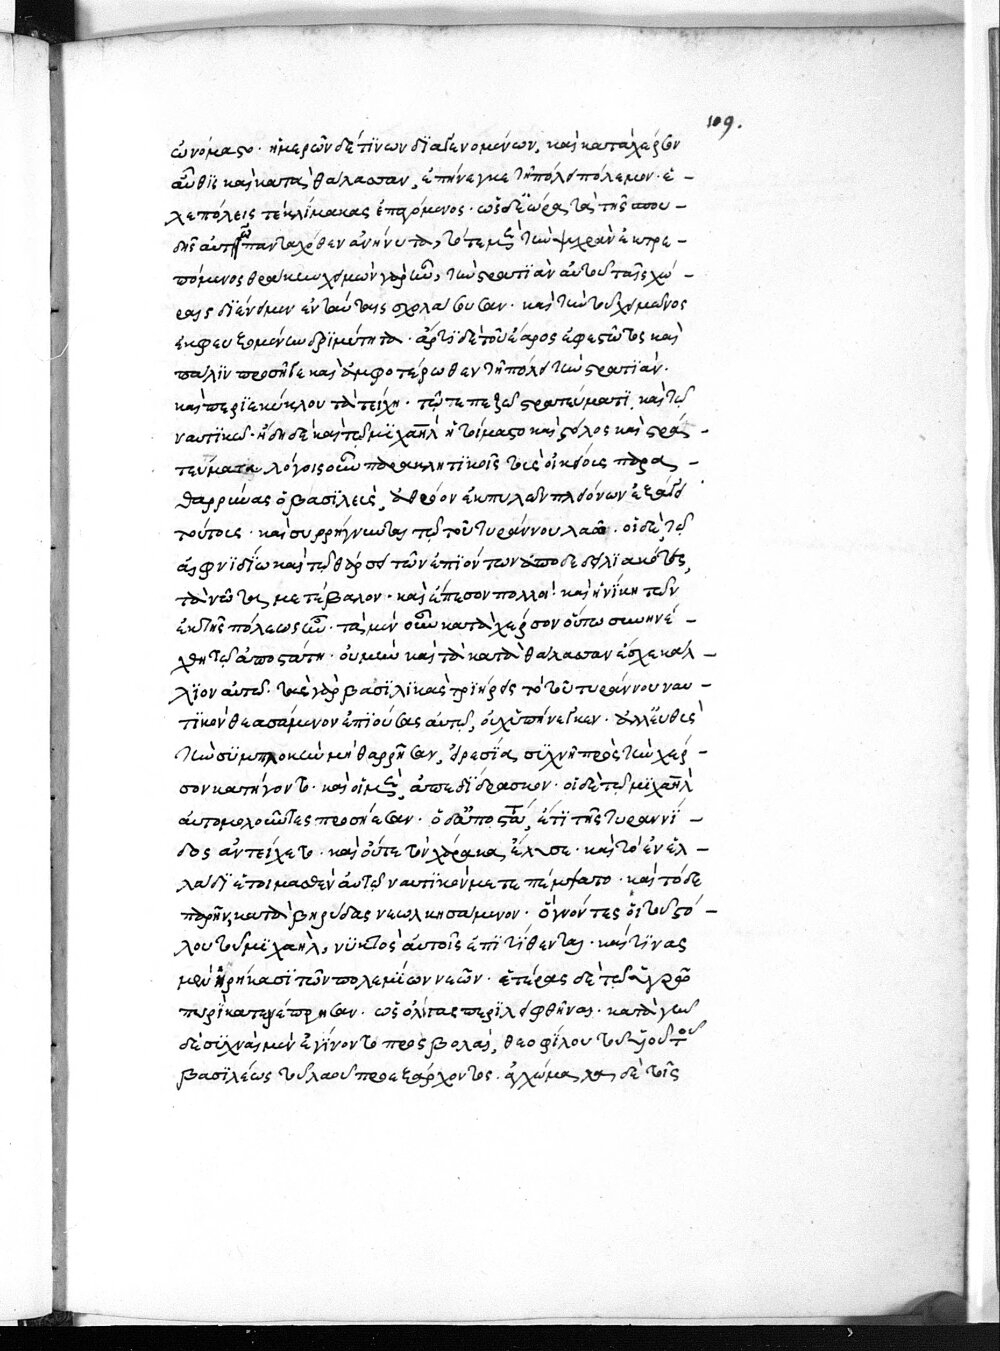 109.
ὠνόμαστο· ἡμερῶν δέ τινων διαγενομένων, καὶ κατὰ χέρσον
αὖθις καὶ κατὰ θάλασσαν, ἐπήνεγκε τῇ πόλει πόλεμον· ἑ-
λεπόλεις τε κλίμακας ἐπαγόμενος· ὡς δὲ ἑώρα τὰ τῆς σπου-
δῆς αὐτῷ πανταχόθεν ἀνήνυτα, τότε μὲν τὴν ψυχρὰν ἐκτρε-
πόμενος θρακικὴν χειμὼν γὰρ ἦν, τὴν στρατιὰν αὐτοῦ ταῖς χώ-
ραις διένειμεν ἐν ταύταις σχολάσουσαν· καὶ τὴν τοῦ χειμῶνος
ἐκφευξομένην δριμύτητα· ἄρτι δὲ τοῦ ἔαρος ἐφεστῶτος καὶ
πάλιν προσῆγε καὶ ἀμφοτέρωθεν τῇ πόλει τὴν στρατιάν·
καὶ περιεκύκλου τὰ τείχη· τῷ τε πεζῷ στρατεύματι, καὶ τῷ
ναυτικῷ· ἤδη δὲ καὶ τῷ μιχαὴλ ἡτοίμαστο καὶ στόλος καὶ στρα-
τεύματα λόγοις οὖν παρακλητικοῖς τοὺς οἰκείους παρα-
θαρρύνας ὁ βασιλεὺς, ἀθρόον ἐκ πυλῶν πλειόνων ἐξάγει
τούτους· καὶ συρρήγνυνται τῷ τοῦ τυράννου λαῷ· οἱ δὲ τῷ
αἰφνιδίῳ καὶ τῷ θάρσει τῶν ἐπιόντων ἀποδεδειλιακότες,
τὰ νῶτα μετέβαλον· καὶ ἔπεσον πολλοί· καὶ ἡ νίκη τῶν
ἐκ τῆς πόλεως ἦν· τὰ μὲν οὖν κατὰ χέρσον οὕτω συνηνέ-
χθη τῷ ἀποστάτῃ· οὐ μὴν καὶ τὰ κατὰ θάλασσαν ἔσχε κάλ-
λιον αὐτῷ· τὰς γὰρ βασιλικὰς τριήρεις τὸ τοῦ τυράννου ναυ-
τικὸν θεασάμενον ἐπιούσας αὐτῷ, οὐχ ὑπήνεγκεν· ἀλλ' εὐθὺς
τὴν συμπλοκὴν μὴ θαρρῆσαν, εἰρεσίᾳ συχνῇ πρὸς τὴν χέρ-
σον κατήγοντο· καὶ οἱ μὲν, ἀπεδίδρασκον· οἱ δὲ τῷ μιχαὴλ
αὐτομολοῦντες προσῄεσαν· ὁ δ' ἀποστάτης, ἔτι τῆς τυραννί-
δος ἀντείχετο· καὶ οὔτε τὸν χάρακα ἔλυσε· καὶ τὸ ἐν ἑλ-
λάδι ἑτοιμασθὲν αὐτῷ ναυτικὸν μετεπέμψατο· καὶ τὸ δὲ
παρῆν, κατὰ βηρύδας νεωλκησάμενον· ὃ γνόντες οἱ τοῦ στό-
λου τοῦ μιχαὴλ, νυκτὸς αὐτοῖς ἐπιτίθενται· καὶ τινὰς
μὲν ᾑρήκασι τῶν πολεμίων νεῶν· ἑτέρας δὲ τῷ ὑγρῷ
πυρὶ κατεπέπρησαν· ὡς ὀλίγας περιλειφθῆναι· κατὰ γῆν
δὲ συχναὶ μὲν ἐγίνοντο προσβολαὶ, θεοφίλου τοῦ υἱοῦ τοῦ
βασιλέως τοῦ λαοῦ προεξάρχοντος· ἀγχώμαλα δὲ τοῖς